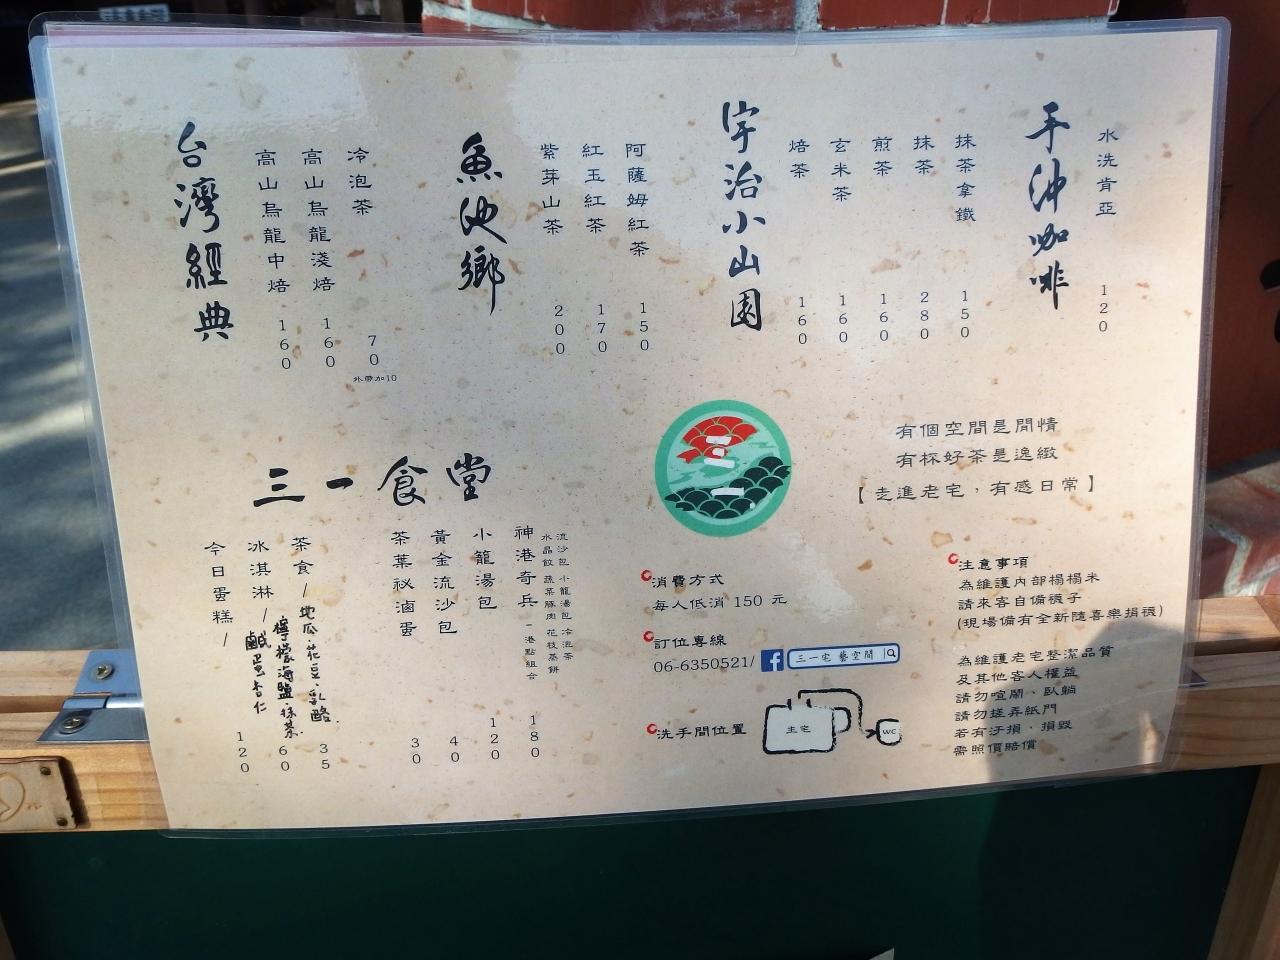 手沖咖啡
水洗肯亞 120
宇治小山園
抹茶拿鐵 150
抹茶 280
煎茶 160
玄米茶 160
焙茶 160
魚池鄉
阿薩姆紅茶 150
紅玉紅茶 170
紫芽山茶 200
台灣經典
冷泡茶 70
外帶加10
高山烏龍淺焙 160
高山烏龍中焙 160
有個空間是閒情
有杯好茶是逸緻
【走進老宅，有感日常】
三一食堂
流沙包 小籠湯包 冷泡茶
水晶餃 蔬菜豚肉 花枝蒸餅
神港奇兵 - 港點組合 180
小籠湯包 120
黃金流沙包 40
茶葉祕滷蛋 30
茶食/地瓜.花豆.乳酪. 35
冰淇淋/檸檬海鹽.抹茶. 60
今日蛋糕/鹹蛋杏仁 120
消費方式
每人低消 150 元
訂位專線
06-6350521/ f 三一宅 藝空間
洗手間位置
主宅
WC
注意事項
為維護內部榻榻米
請來客自備襪子
(現場備有全新隨喜樂捐襪)
為維護老宅整潔品質
及其他客人權益
請勿喧鬧、臥躺
請勿搓弄紙門
若有汙損、損毀
需照價賠償